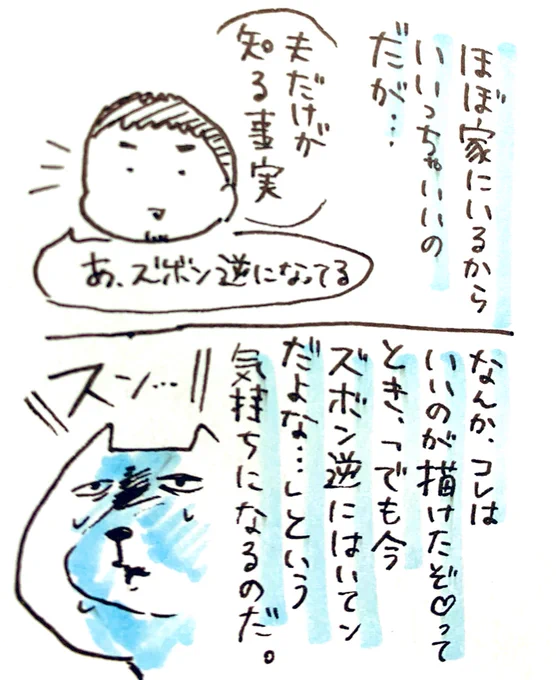 ほぼ家にいるから
いいっちゃいいの
だが…
夫だけが
知る事実
あ、ズボン逆になってる
なんか、コレは
いいのが描けたぞ♡って
とき、「でも今
ズボン逆にはいてン
だよな…」という
気持ちになるのだ。
スン…